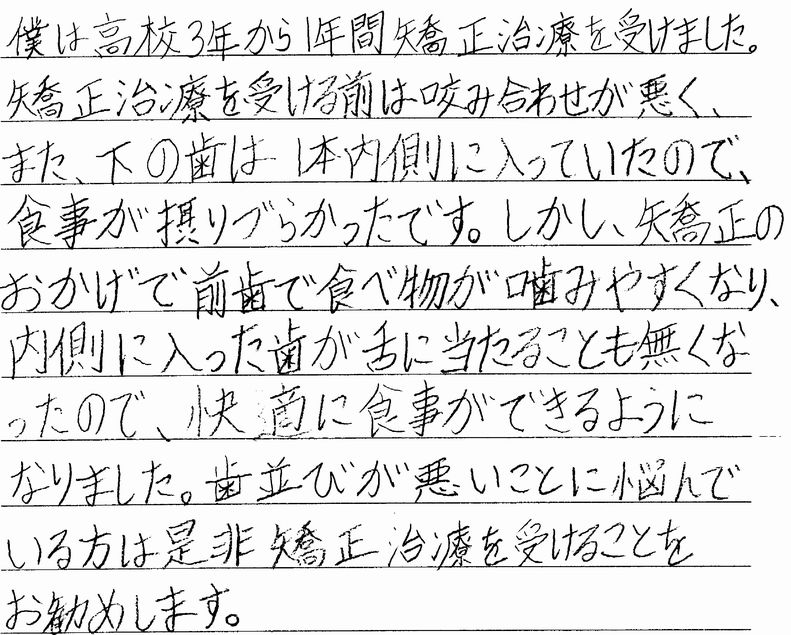 僕は高校3年から1年間矯正治療を受けました。
矯正治療を受ける前は咬み合わせが悪く、
また、下の歯は1本内側に入っていたので、
食事が摂りづらかったです。しかし、矯正の
おかげで前歯で食べ物が噛みやすくなり、
内側に入った歯が舌に当たることも無くな
ったので、快適に食事ができるように
なりました。歯並びが悪いことに悩んで
いる方は是非矯正治療を受けることを
お勧めします。